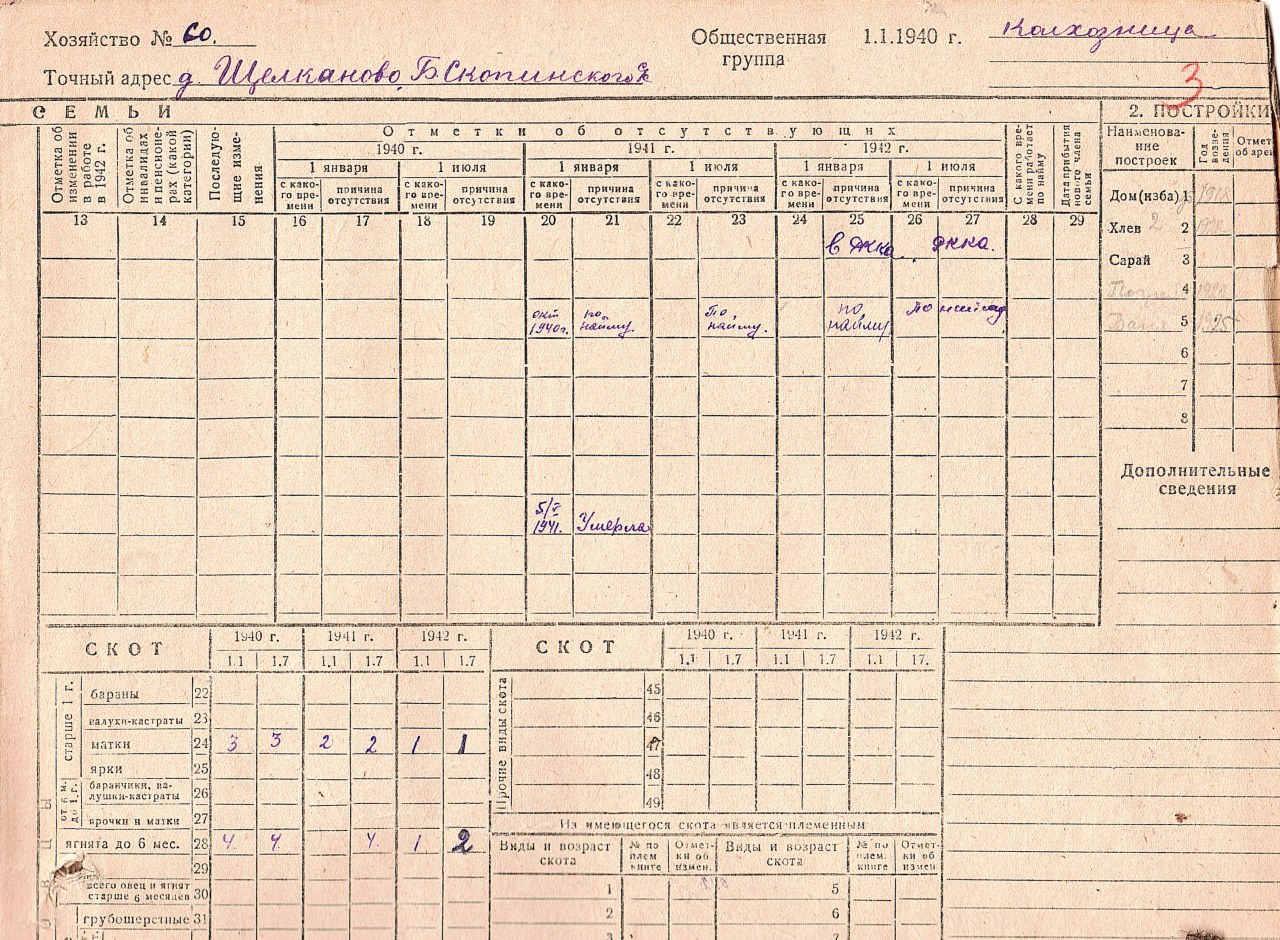 Хозяйство № 60.
Общественная группа 1.1.1940 г. Колхозница
Точный адрес д. Щелканово, Б. Скопинского с/с
3
СЕМЬИ
2. ПОСТРОЙКИ
Отметка об изменении в работе в 1942 г.
Отметка об инвалидах и пенсионерах (какой категории)
Последующие изменения
Отметки об отсутствующих
1940 г. 1941 г. 1942 г.
1 января 1 июля 1 января 1 июля 1 января 1 июля
с како-го вре-мени причина отсутствия с како-го вре-мени причина отсутствия с како-го вре-мени причина отсутствия с како-го вре-мени причина отсутствия с како-го вре-мени причина отсутствия с како-го вре-мени причина отсутствия
С какого вре-мени работает по найму
Дата прибытия нового члена семьи
Наименова-ние построек
Год возве-дения
13 14 15 16 17 18 19 20 21 22 23 24 25 26 27 28 29
в РККА. РККА.
окт 1940г. по найму. По найму. по найму
5/V 1941. Умерла
Дом (изба) 1 1918
Хлев 2 2
Сарай 3
4
5
6
7
8
Дополнительные сведения
СКОТ 1940 г. 1941 г. 1942 г.
1.1 1.7 1.1 1.7 1.1 1.7
старше 1 г.
бараны 22
валухи-кастраты 23
матки 24 3 3 2 2 1 1
ярки 25
от 6 м. до 1 г.
баранчики, ва-лушки-кастраты 26
ярочки и матки 27
ягнята до 6 мес. 28 4 4 4 1 2
29
всего овец и ягнят старше 6 месяцев 30
грубошерстные 31
СКОТ 1940 г. 1941 г. 1942 г.
1.1 1.7 1.1 1.7 1.1 17.
Прочие виды скота
45
46
47
48
49
Из имеющегося скота является племенным
Виды и возраст скота № по плем. книге Отмет-ки об измен. Виды и возраст скота № по плем. книге Отмет-ки об измен
1 5
2 6
3 7